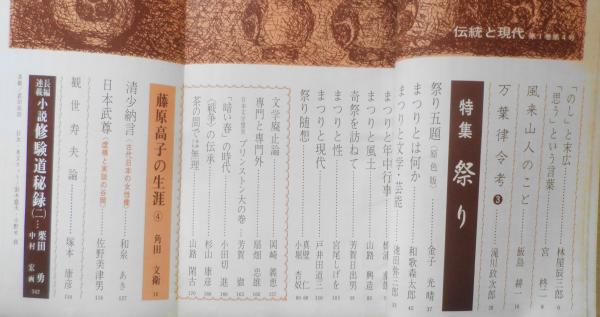 伝統と現代 第1巻第4号
「のし」と末広 林屋辰三郎 6
「思う」という言葉 宮 柊二
風来山人のこと 飯島 耕一 16
万葉律令考 ③ 滝川政次郎
特集 祭り
祭り五題（原色版） 金子 光晴 37
まつりとは何か 和歌森太郎 42
まつりと文学・芸能 池田弥三郎
まつりと年中行事
まつりと風土 山路 興造
奇祭を訪ねて 芳賀日出男
まつりと性 宮尾しげを
まつりと現代 戸井田道三
祭り随想 真壁 仁
小堀 杏奴
文学廃止論 岡崎 義恵
専門と専門外 扇畑 忠雄
プリンストン大の巻 芳賀 徹
「暗い春」の時代 小田切 進
〈戦争〉の伝承 杉山 康彦
茶の間では無理 山路 閑古 170
藤原高子の生涯 ④ 角田 文衛
清少納言（古代日本の女性像） 和泉 あき
日本武尊（虚構と実説の谷間） 佐野美津男
観世寿夫論 塚本 康彦
長編連載 小説 修験道秘録（二） 栗田 勇
中村 宏画